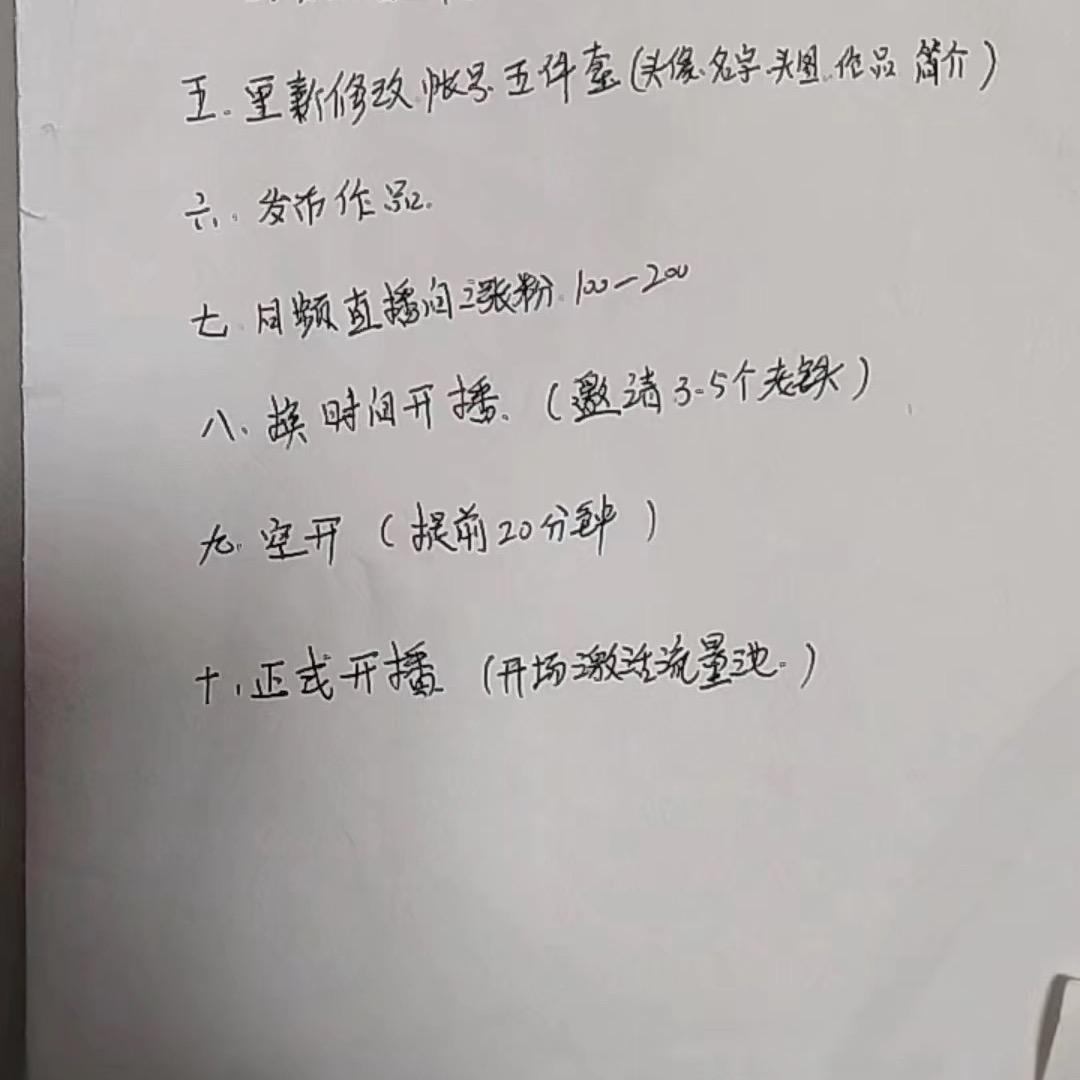 五.重新修改帐号五件套(头像.名字.头图.作品 简介)
六.发布作品.
七.同频直播间涨粉.100-200
八、换时间开播.(邀请3-5个老铁)
九.空开(提前20分钟)
十.正式开播.(开场激活流量池.)